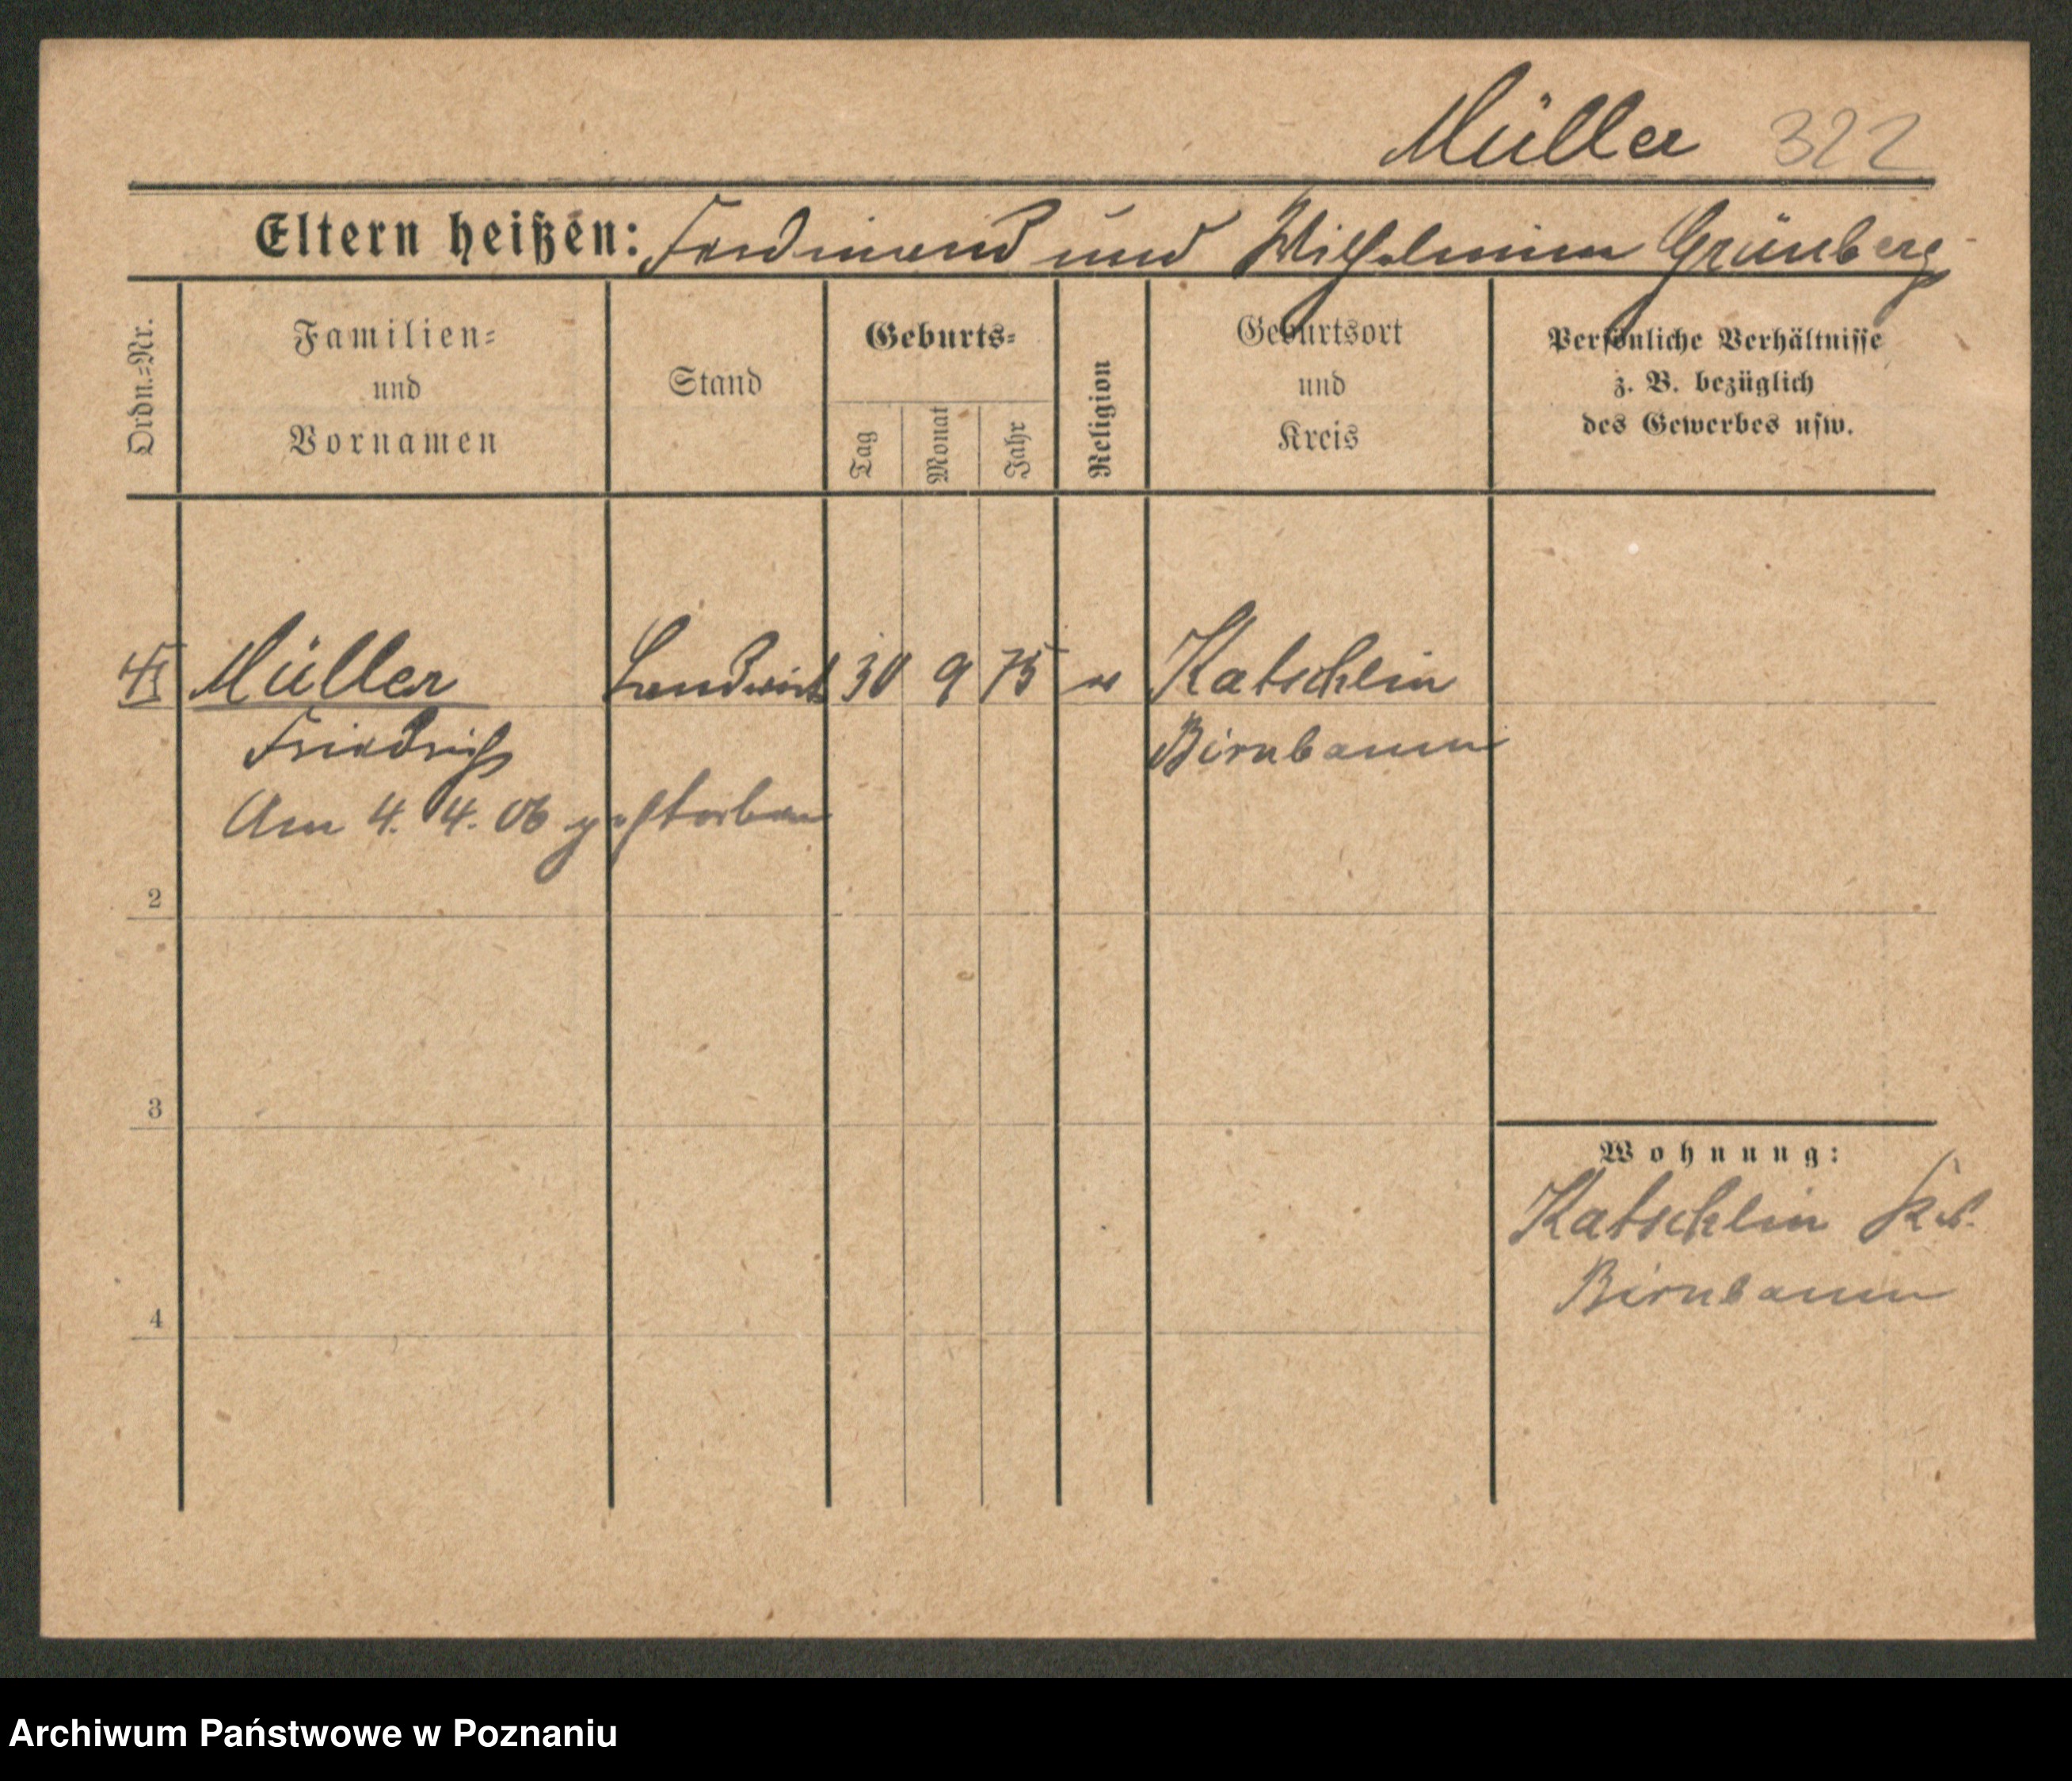 Müller 322
Eltern heißen: Ferdinand und Wilhelmine Grünberg
Ordn.=Nr.
Familien=
und
Vornamen
Stand
Geburts=
Tag
Monat
Jahr
Religion
Geburtsort
und
Kreis
Persönliche Verhältnisse
z. B. bezüglich
des Gewerbes usw.
Müller Landwirt 30 9 75 Katschlin
Friedrich Birnbaum
Am 4. 4. 06 gestorben
2
3
4
Wohnung:
Katschlin
Birnbaum
Archiwum Państwowe w Poznaniu